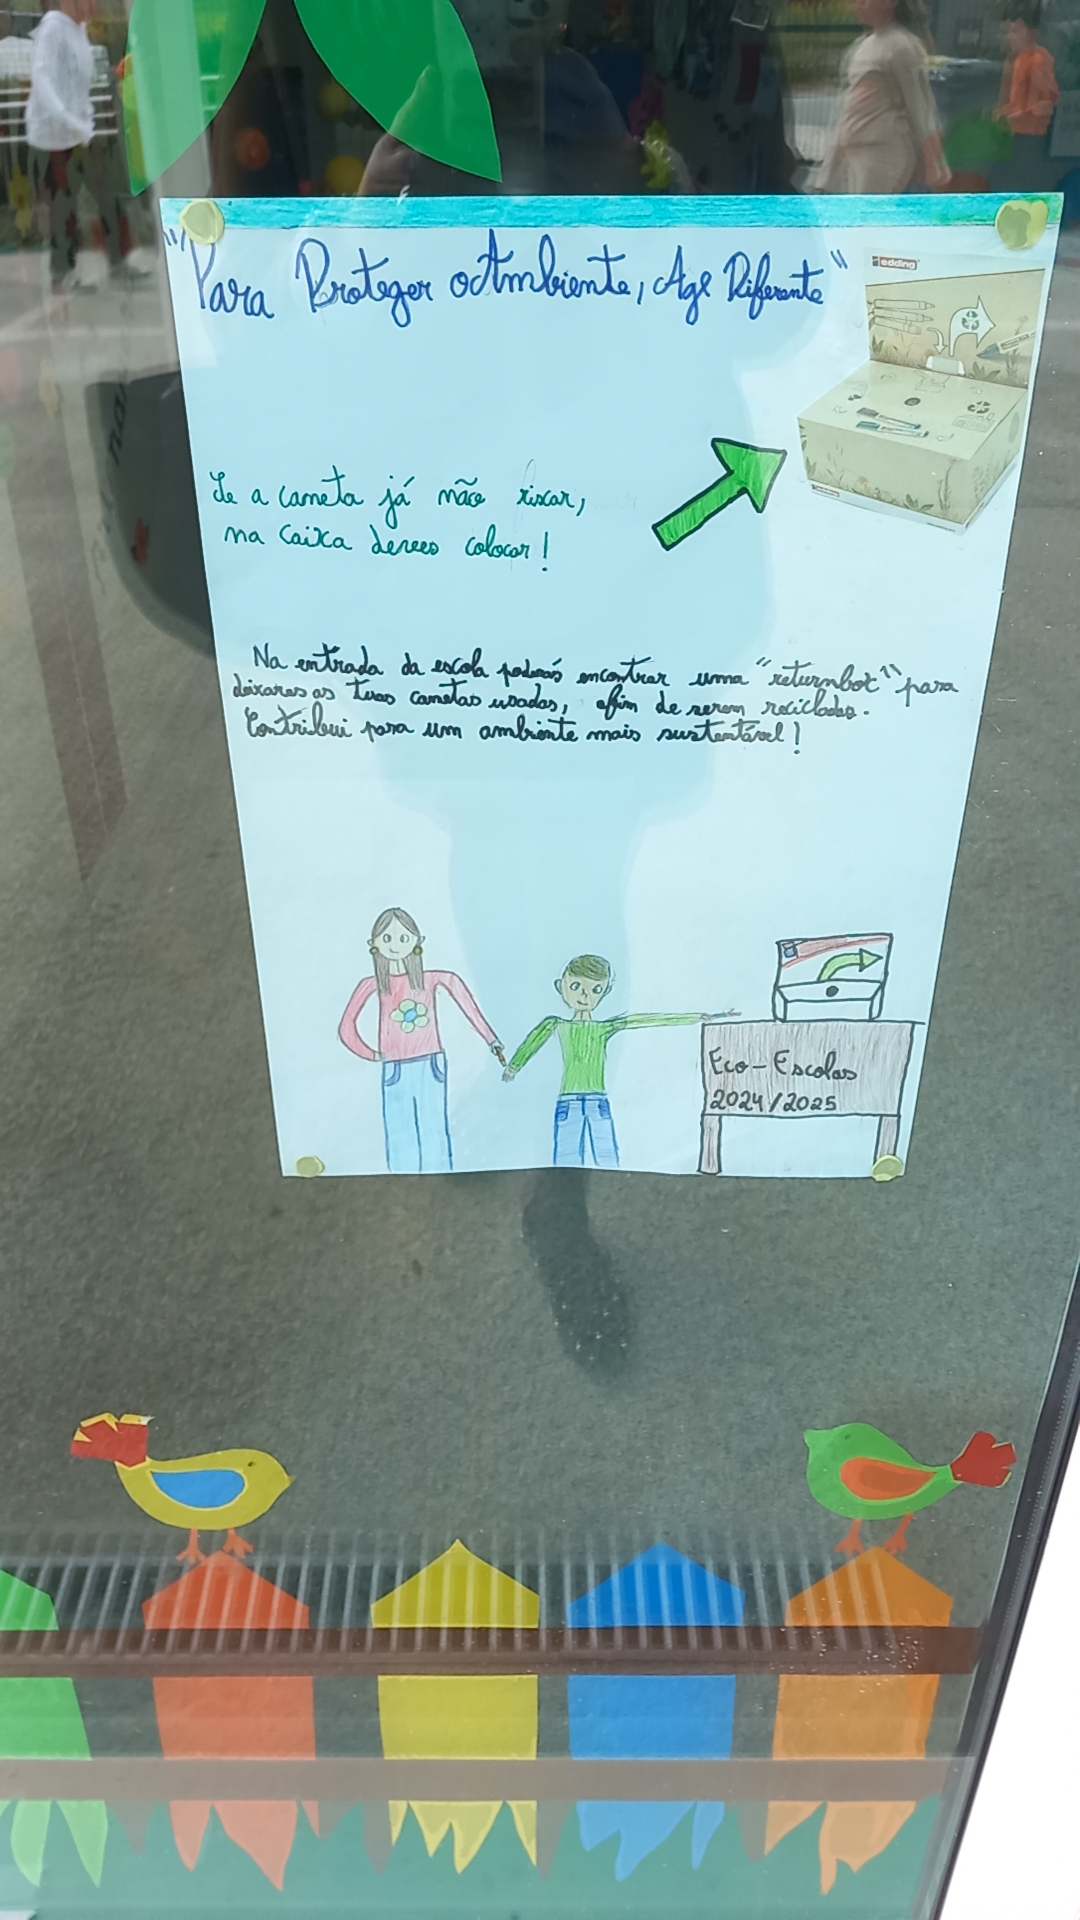 "Para Proteger o Ambiente, Age Diferente"
edding
Se a caneta já não riscar,
na caixa deves colocar!
Na entrada da escola poderás encontrar uma "returnbox" para
deixares as tuas canetas usadas, afim de serem recicladas.
Contribui para um ambiente mais sustentável!
Eco-Escolas
2024/2025